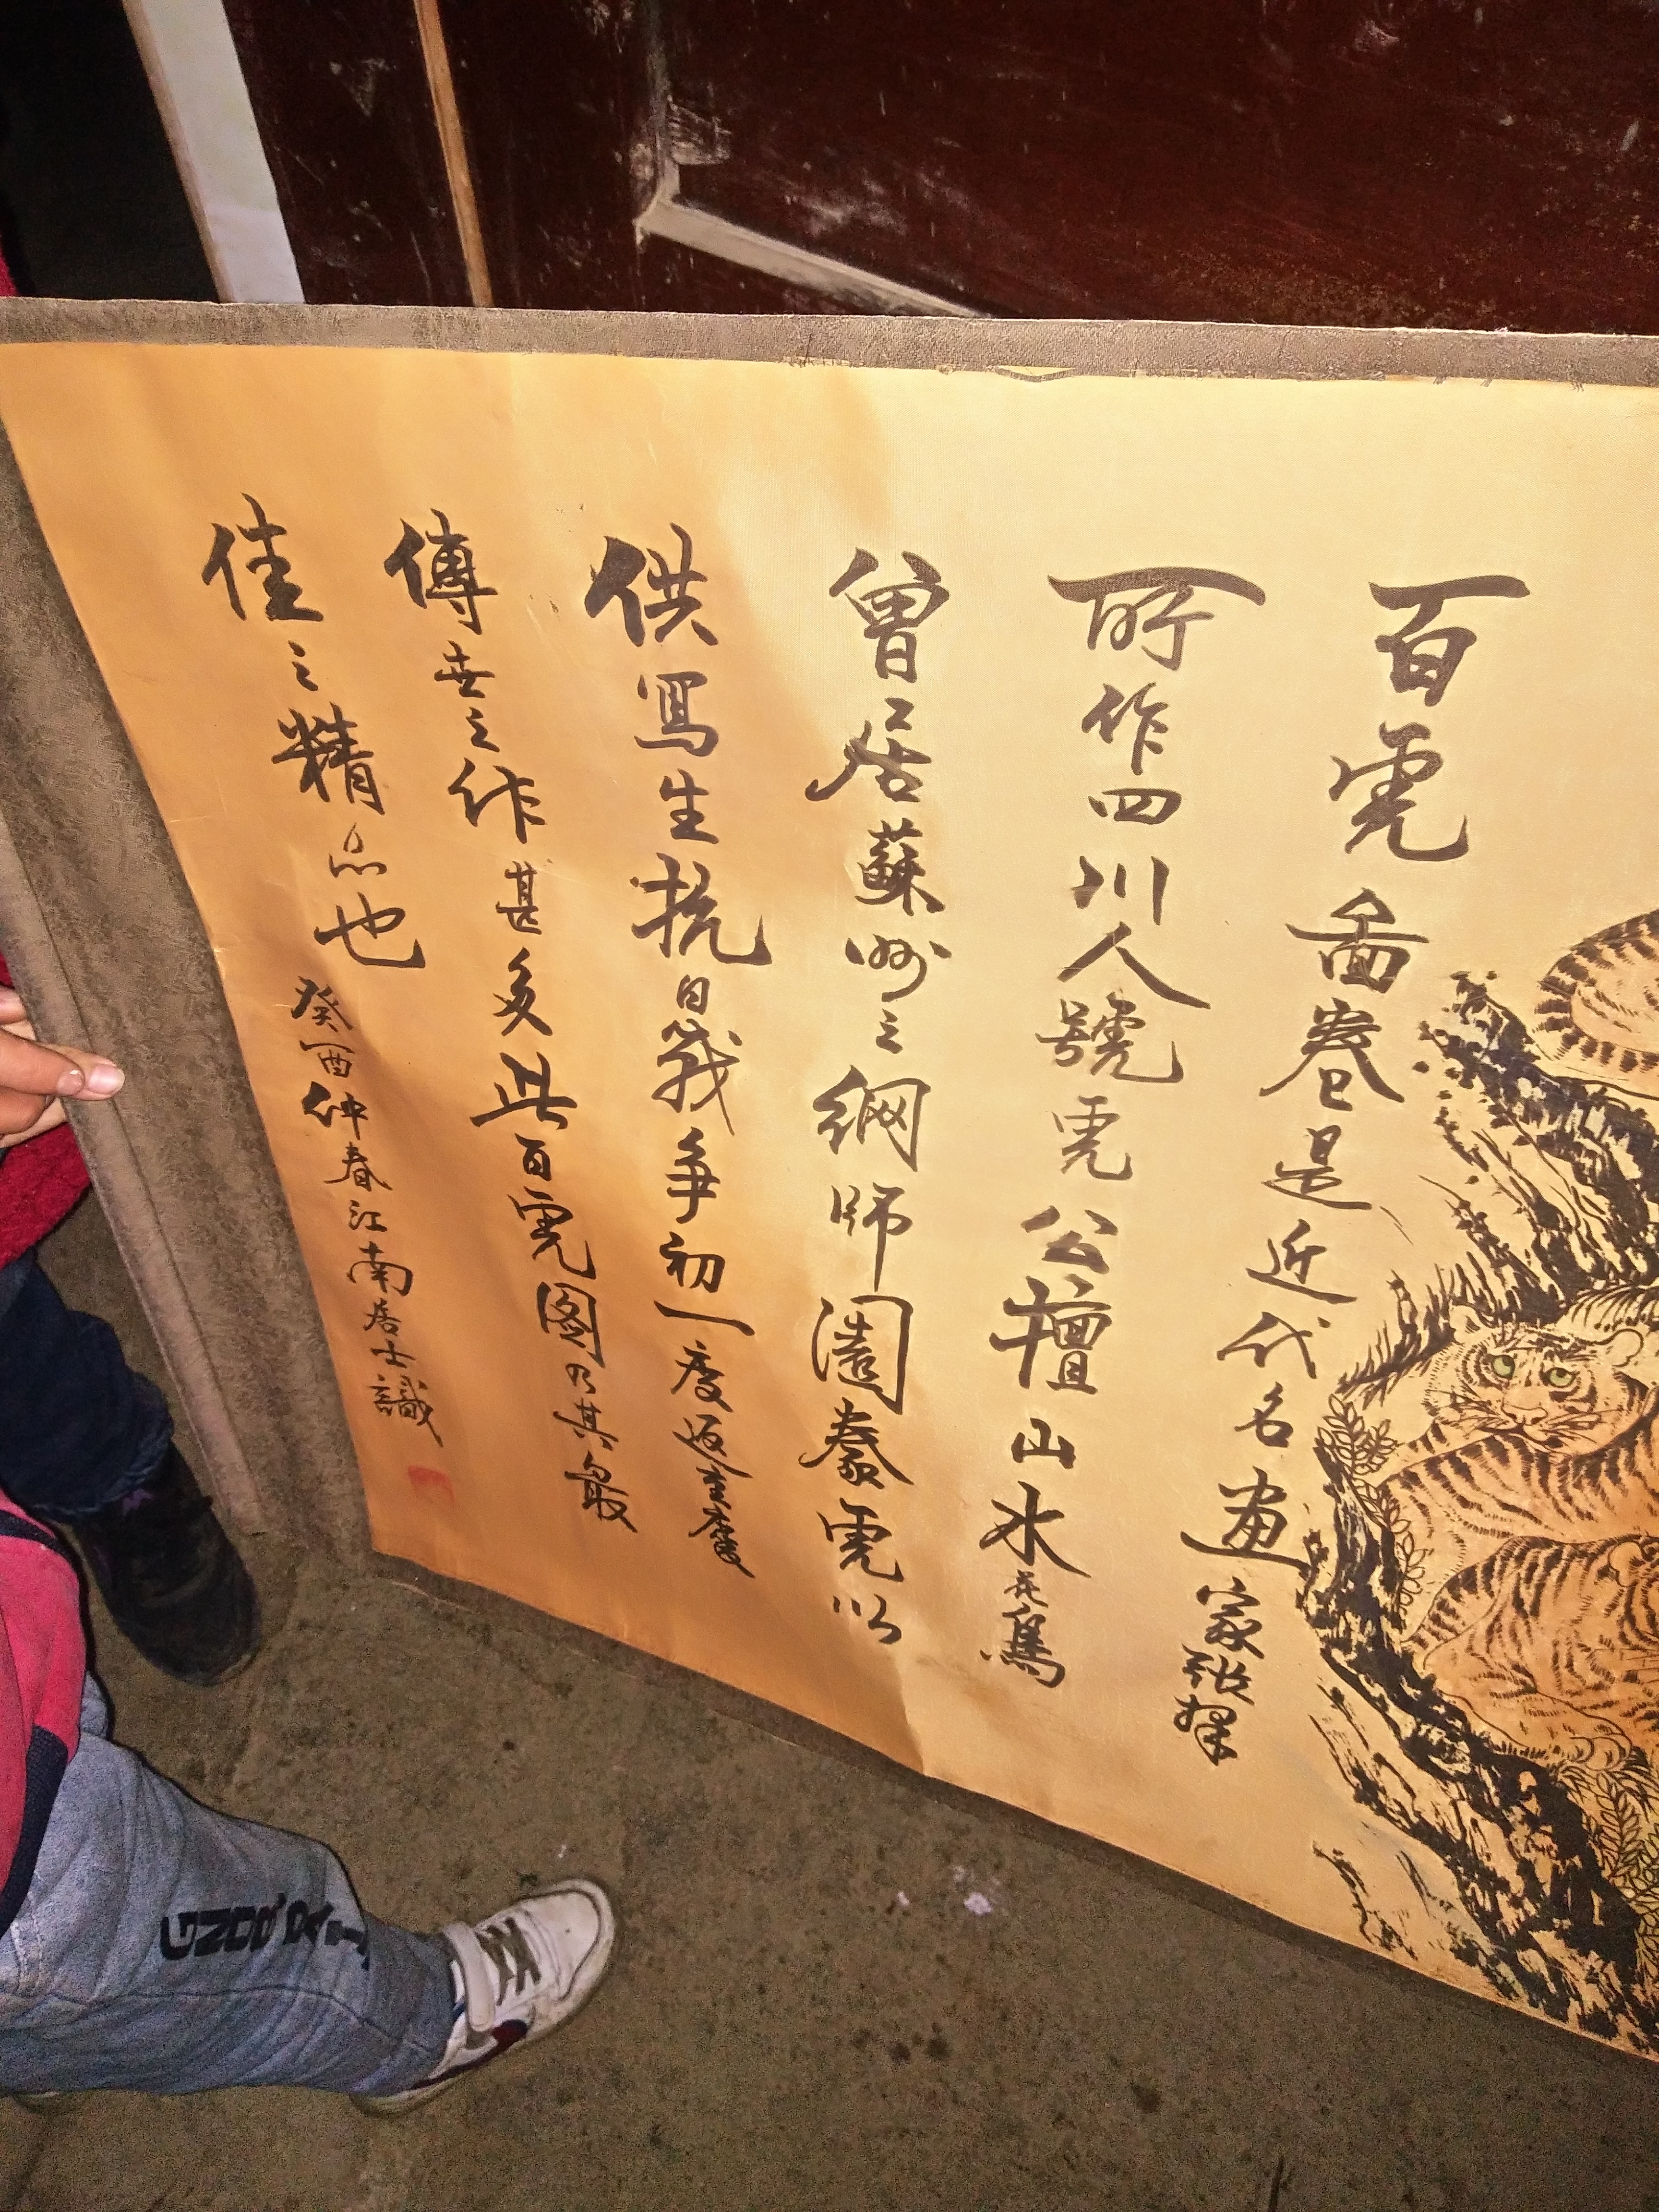 百虎圖卷是近代名畫家張善孖
所作四川人號虎公擅山水花鳥
曾居蘇州之網師園豢虎以
供寫生抗日戰爭初一度返重慶
傳世之作甚多此百虎图乃其最
佳之精品也
癸酉仲春江南居士識